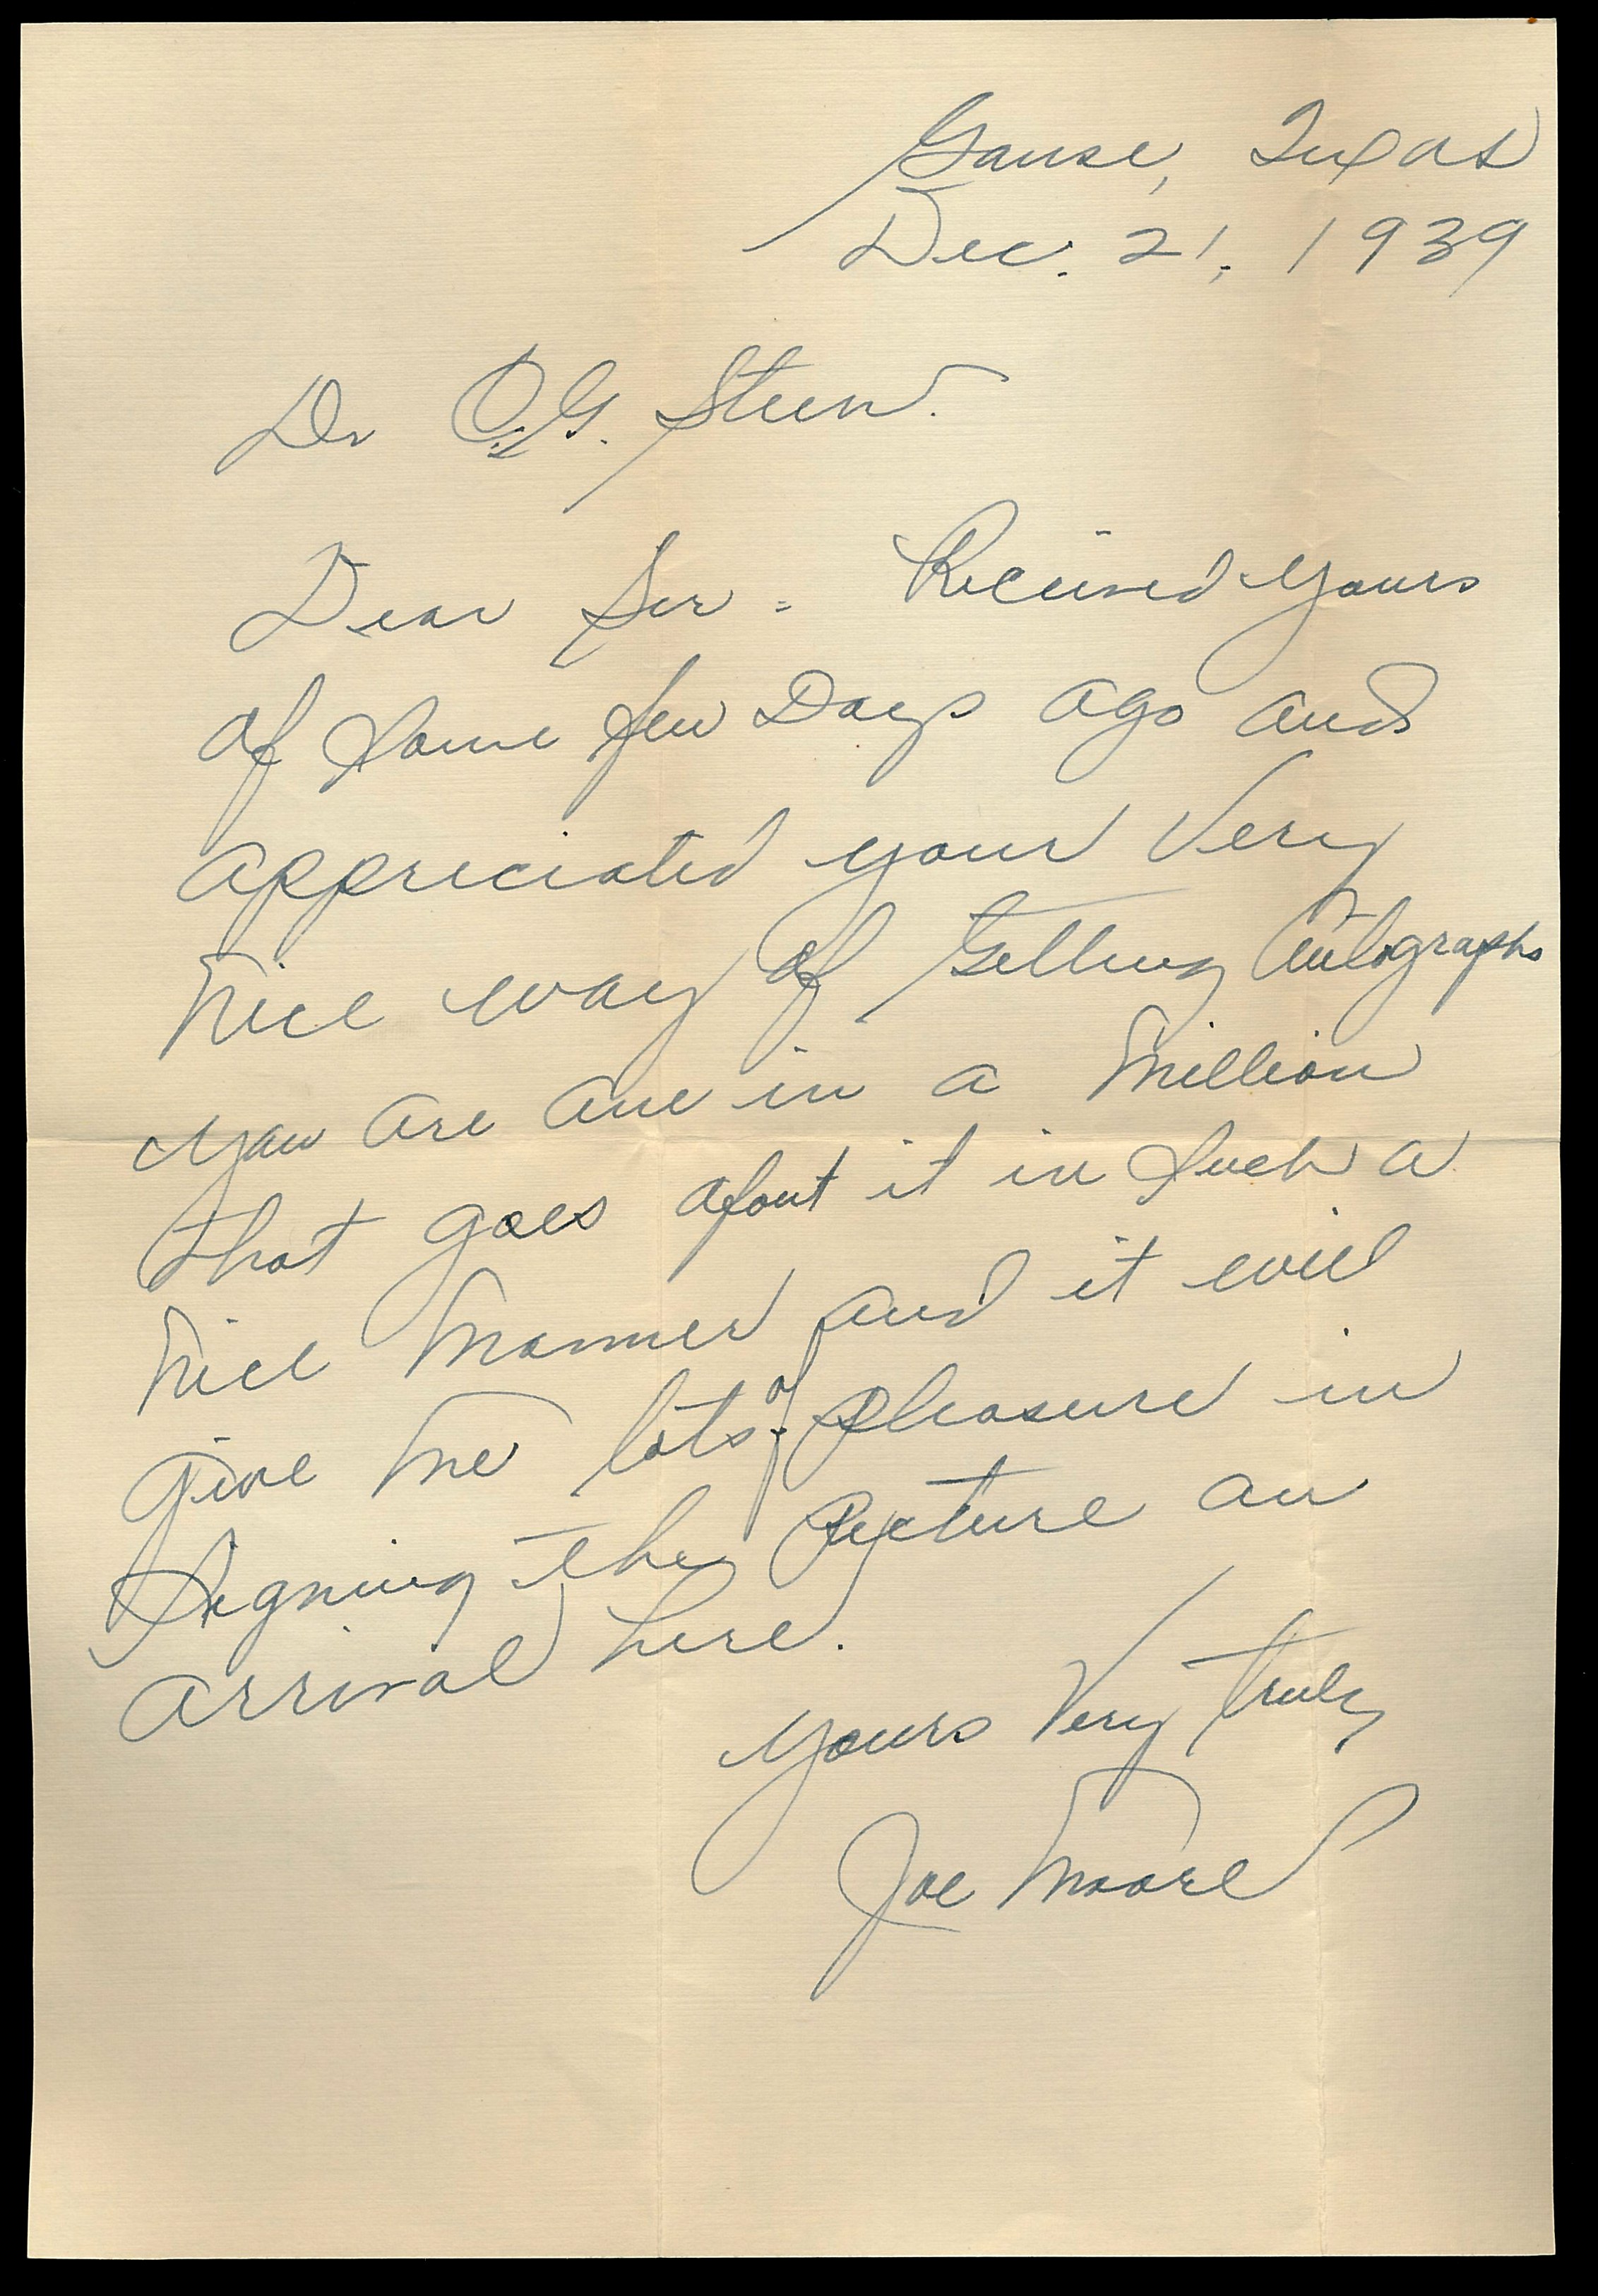 Gause, Texas
Dec. 21, 1939
Dr O.G. Steen.
Dear Sir = Received yours
of some few Days ago and
appreciated your Very
Nice way of Getting Autographs
you are one in a Million
that goes about it in such a
Nice Manner and it will
give me lots of pleasure in
signing the picture on
arrival here.
yours Very truly
Joe Moore